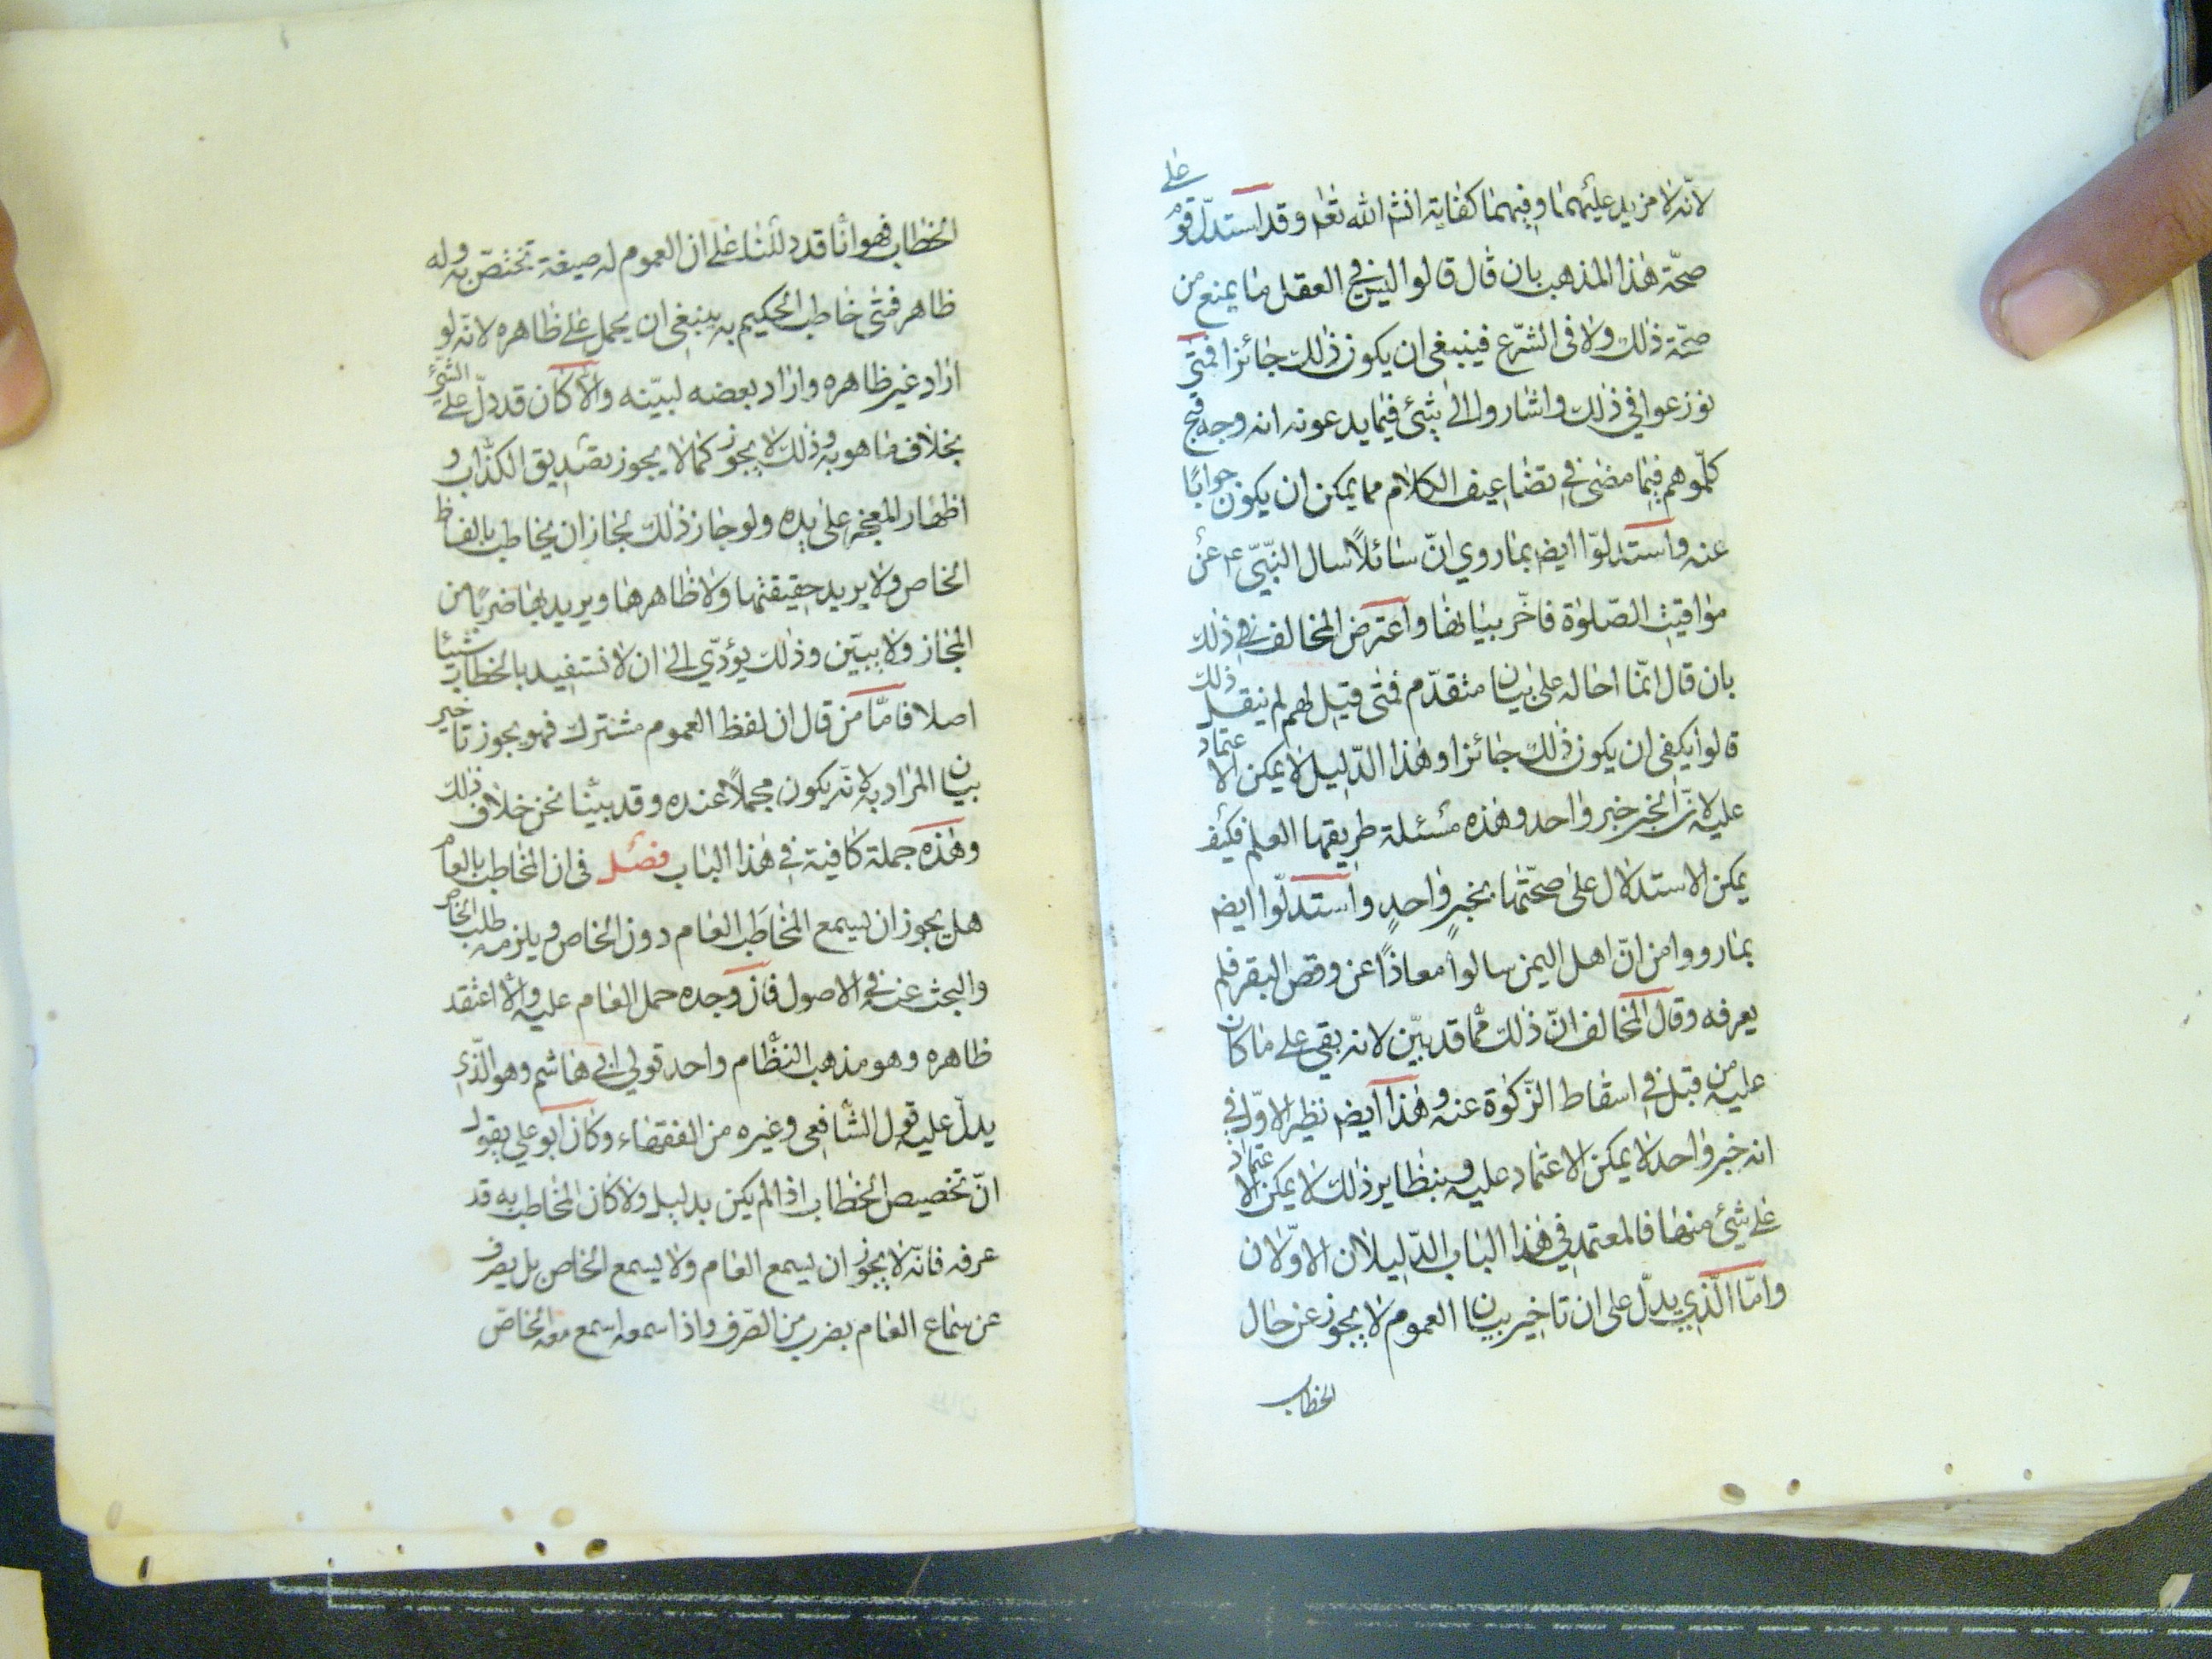 لانّه لا مزيد عليهما وفيهما كفاية انشاء الله تعالى وقد استدلّ قوم على
صحّة هذا المذهب بان قال قالوا ليس في العقل ما يمنع من
صحّة ذلك ولا في الشّرع فينبغي ان يكون ذلك جائزا فمتى
نوزعوا في ذلك واشاروا الى شئ فيما يدعونه انه وجه قبح
كلّموهم فيما مضى في تضاعيف الكلام مما يمكن ان يكون جوابًا
عنه واستدلوّا ايضم بما روي انّ سائلاً سال النّبّي ع عن
مواقيت الصّلوة فاخّر بيانها واعترض المخالف في ذلك
بان قال انّما احاله على بيان متقدّم فمتى قيل لهم لم ينقل ذلك
قالوا يكفي ان يكون ذلك جائزا وهذا الدّليل لا يمكن الاعتماد
عليه لانّ الخبر خبر واحد وهذه مسئلة طريقها العلم فكيف
يمكن الاستدلال على صحّتها بخبرٍ واحدٍ واستدلّوا ايضم
بما رووا من انّ اهل اليمن سالوا معاذًا عن وقص البقر فلم
يعرفه وقال المخالف انّ ذلك ممّا قد بيّن لانه بقي على ما كان
عليه من قبل في اسقاط الزّكوة عنه وهذا ايضم نظير الاوّل في
انه خبر واحد لا يمكن الاعتماد عليه وبنظاير ذلك لا يمكن الاعتماد
على شئ منها فالمعتمد في هذا الباب الدّليلان الاوّلان
وامّا الّذي يدلّ على ان تاخير بيان العموم لا يجوز عن حال
الخطاب
الخطاب فهو انّا قد دللنا على ان العموم له صيغة تختصّ به وله
ظاهر فمتى خاطب الحكيم به ينبغي ان يحمل على ظاهره لانّه لو
اراد غير ظاهره واراد بعضه لبيّنه والّا كان قد دلّ على الشئ
بخلاف ما هو به وذلك لا يجوز كما لا يجوز تصديق الكذّاب و
اظهار المعجز على يده ولو جاز ذلك لجاز ان يخاطب بالفاظ
الخاص ولا يريد حقيقتها ولا ظاهرها ويريد بها ضربًا من
المجاز ولا يبيّن وذلك يؤدّي الى ان لا نستفيد بالخطاب شيئا
اصلا فامّا من قال ان لفظ العموم مشترك فهو يجوز تاخير
بيان المراد به لانّه يكون مجملاً عنده وقد بيّنا نحن خلاف ذلك
وهذه جملة كافية في هذا الباب فصل في ان المخاطب بالعام
هل يجوز ان يسمع المخاطَب العام دون الخاص ويلزمه طلب الخاص
والبحث عنه في الاصول فان وجده حمل العام عليه والّا اعتقد
ظاهره وهو مذهب النظّام واحد قولي ابي هاشم وهو الّذي
يدلّ عليه قول الشّافعي وغيره من الفقهاء وكان ابو علي يقول
انّ تخصيص الخطاب اذا لم يكن بدليل ولا كان المخاطب به قد
عرفه فانّه لا يجوز ان يسمع العام ولا يسمع الخاص بل يصرف
عن سماع العام بضرب من الصّرف واذا سمعه اسمع معه الخاصّ